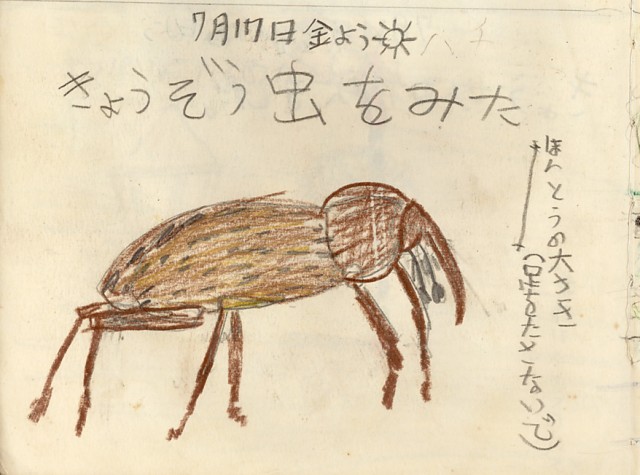 7月17日金よう
きょうぞう虫をみた
ほんとうの大きさ
(足をたさないで)